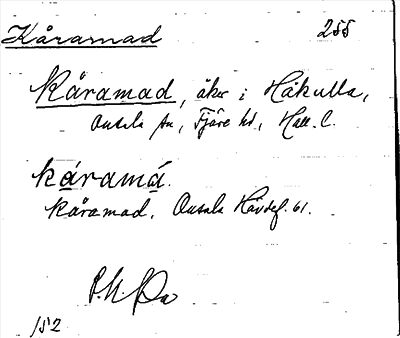 Kåramad 255
Kåramad, åker i Håkulla,
Onsala sn, Fjäre hd, Hall. l.
káramá.
Kåramad. Onsala Hävdef. 61.
152